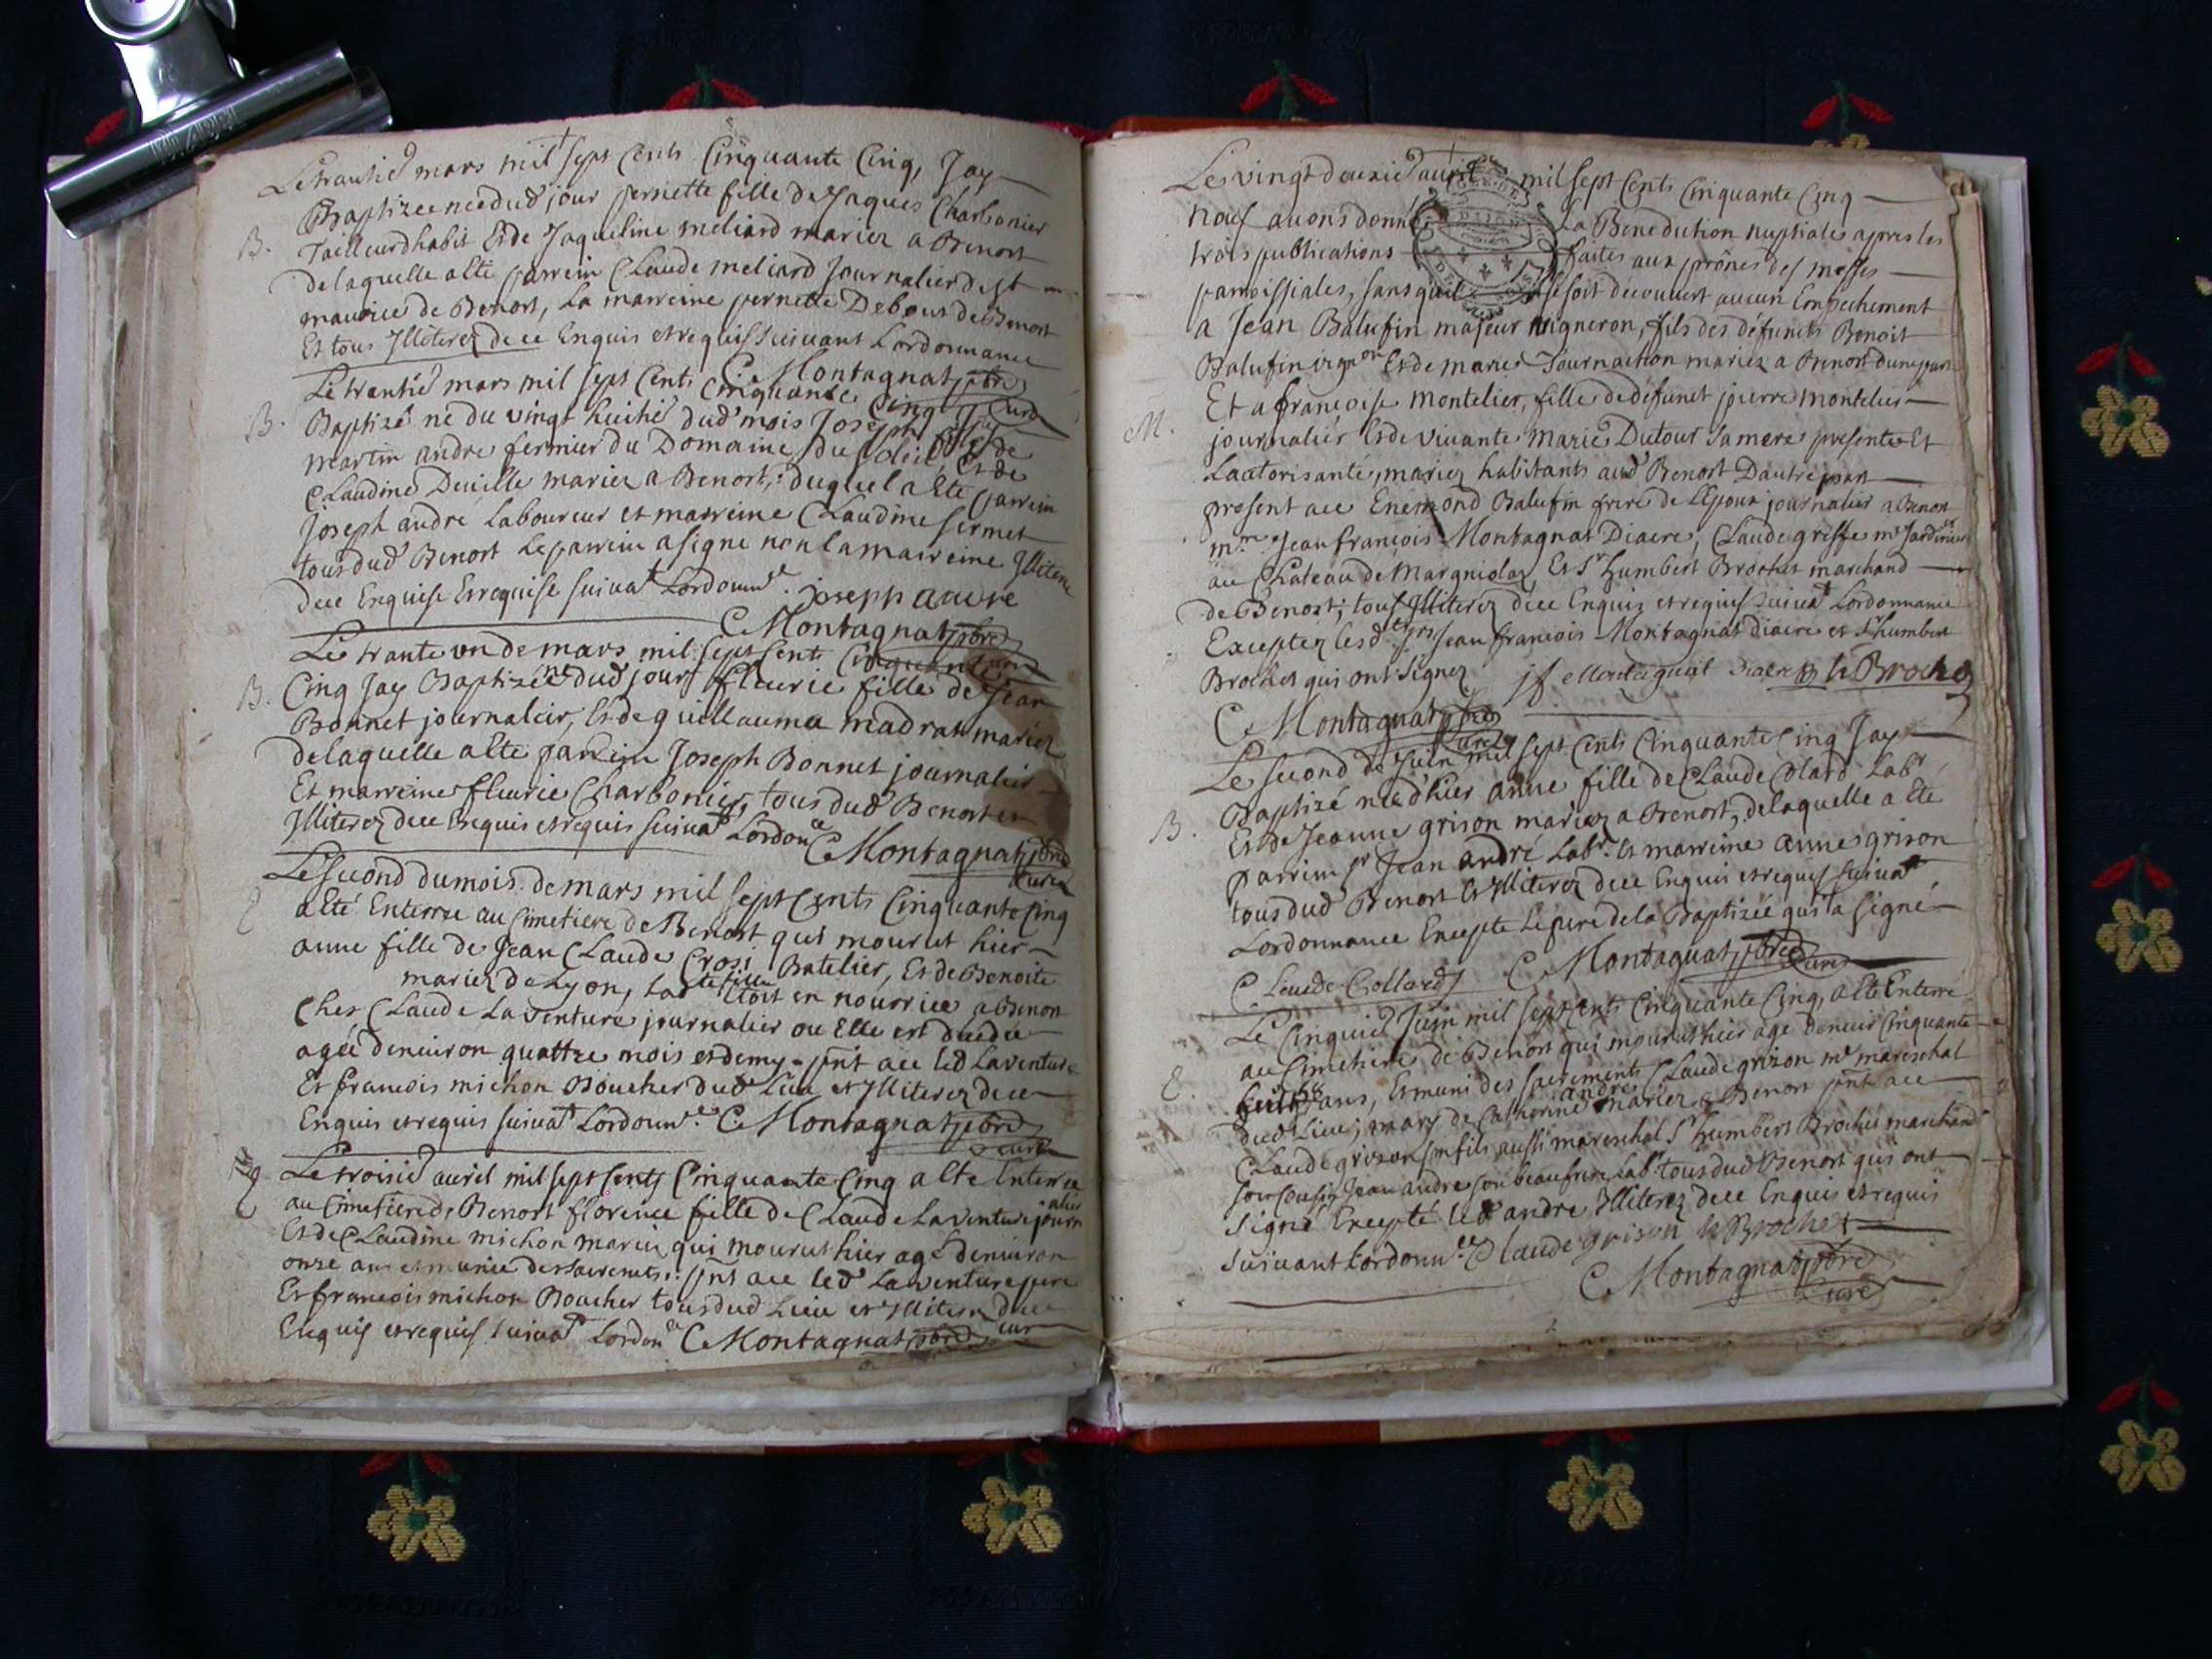 Le trantie mars mil sept Cents Cinquante Cinq, Jay
B. Baptizee née dud jour pernette fille de Jaques Charbonier
Tailleur dhabit Et de Jaqueline meliard mariez a Benort
delaquelle a Eté parrein Claude meliard Journalier de st
maurice de Benort, La marreine pernette Debout de Benort
Et tous Illiterez de ce Enquis et requis suivant Lordonnance
C Montagnat pbre curé
Le trantie mars mil sept Cents Cinquante Cinq Jay
B. Baptizé né du vingt huitie dud mois Joseph fils de
martin andre fermier du Domaine du soleil, Et de
Claudine Deville mariez a Benort, duquel a Eté parrein
Joseph andré Laboureur et marreine Claudine sermet
tous dud Benort Le parrein a signe non la marreine Illiteree
dece Enquise Et requise suivat Lordonnce. joseph andre
C Montagnat pbre curé
Le trante un de mars mil sept Cent Cinquante
B. Cinq Jay Baptizée née dud jour fleurie fille de Jean
Bonnet journaleir, Et de guillauma madrat mariez
delaquelle a Eté parrein Joseph Bonnet journalier
Et marreine fleurie Charbonier, tous dud Benort et
Illiterez dece Enquis et requis suivat Lordonce C Montagnat pbre curé
Le second du mois de mars mil sept Cents Cinquante Cinq
E a Eté Enterree au Cimetiere de Benort qui mourut hier
anne fille de Jean Claude Cros Batelier, Et de Benoite
mariez de Lyon, Lad te fille Etoit en nourrice a Benort
Ches Claude Laventure journalier ou Elle est decedee
agée denviron quattre mois et demy. pnt ace led Laventure
Et francois michon Boucher dud Lieu et Illiterez dece
Enquis et requis suivat Lordonnce. C Montagnat pbre curé
E Le troisie avril mil sept Cents Cinquante Cinq a Eté Enterree
au Cimetiere de Benort florence fille de Claude Laventure journalier
Et de Claudine michon mariez qui mourut hier agé denviron
onze ans et munie des sacremts. pnt ace led Laventure pere
Et francois michon Boucher tous dud Lieu et Illiterez dece
Enquis et requis suivat Lordonce C Montagnat pbre curé
Le vingt deuxie avril mil sept Cents Cinquante Cinq
nous avons donné La Benediction nuptiale apres les
trois publications faites aux prônes des messes
paroissiales, sans quil se soit decouvert aucun Empechement
a Jean Balufin majeur vigneron, fils des défuncts Benoit
Balufin vignon Et de marie Tournachon mariez a Benort dune part
M. Et a francoise Montelier, fille de défunct pierre montelier
journalier Et de vivante Marie Dutour sa mere presente Et
Lautorisante, mariez habitants aud Benort Dautre part
present ace Enemond Balufin frere de L'Epoux journalier a Benort
mre Jean francois Montagnat Diacre, Claude griffe me Jardinier
au Chateau de Margniolaz, Et Sr humbert Brochet marchand
de Benort; tous Illiterez dece Enquis et requis suivat Lordonnance
Exceptez lesd Srs Jean francois Montagnat diacre et Sr humbert
Brochet qui ont signez jf Montagnat Diacre h Brochet
C Montagnat pbre curé
Le second de Juin mil sept Cents Cinquante Cinq Jay
B. Baptizé née d'hier anne fille de Claude Colard Labr
Et de Jeanne grison mariez a Benort, delaquelle a Eté
parrein Sr Jean andré Labr. Et marreine anne grison
tous dud Benort Et Illiterez dece Enquis et requis suivat
Lordonnance Excepte Le pere de la Baptizée qui a signé
Claude Collard C Montagnat pbre curé
Le Cinquie Juin mil sept Cents Cinquante Cinq a Eté Enterré
E. au Cimetiere de Benort qui mourut hier agé denvir Cinquante
huit ans, Et muni des sacrements Claude grizon me mareschal
dud Lieu, mary de Catherine andre mariez a Benort pnt ace
Claude grizon son fils aussi mareschal Sr humbert Brochet marchand
son Cousin Jean andre son beaufrere Labr. tous dud Benort qui ont
signé Excepté led andre Illiterez dece Enquis et requis
suivant Lordonnce. Claude grison h Brochet
C Montagnat pbre curé